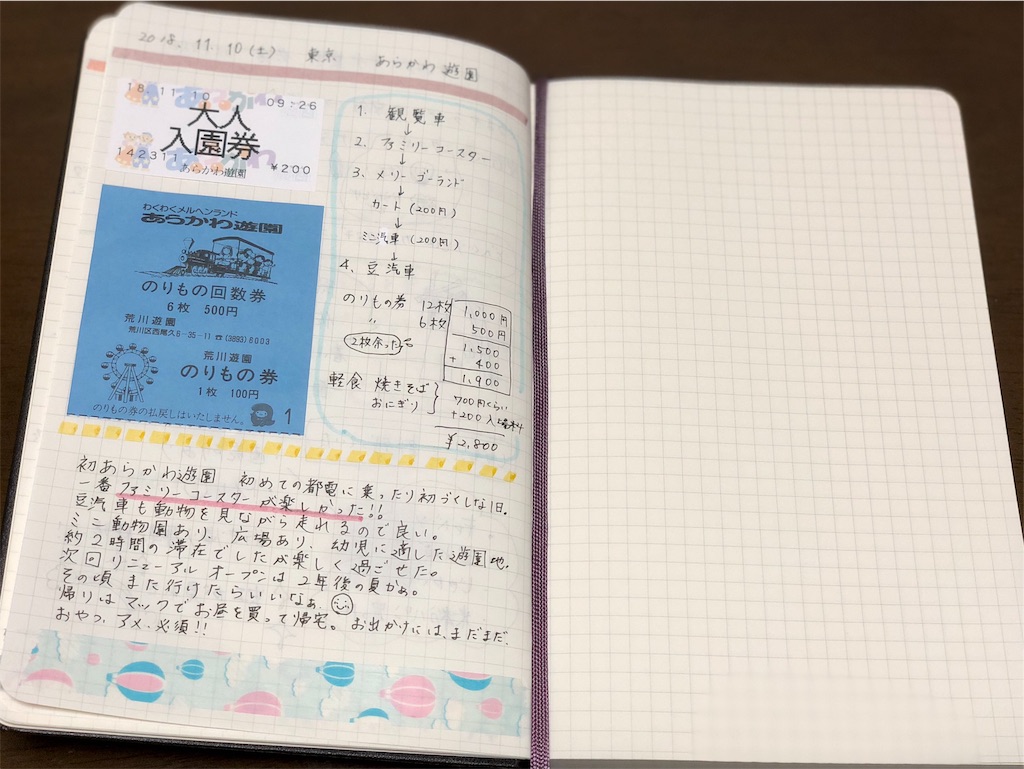 2018. 11. 10 (土) 東京 あらかわ遊園
18 11 10 09:26
大人
入園券
142311
あらかわ遊園 ¥200
わくわくメルヘンランド
あらかわ遊園
のりもの回数券
6枚 500円
荒川遊園
荒川区西尾久6-35-11 ☎(3893)6003
荒川遊園
のりもの券
1枚 100円
のりもの券の払戻しはいたしません。 1
1. 観覧車
↓
2. ファミリーコースター
↓
3. メリーゴーランド
↓
カート (200円)
↓
ミニ汽車 (200円)
↓
4. 豆汽車
のりもの券 12枚 1,000円
〃 6枚 500円
2枚余った 1,500
+ 400
1,900
軽食 焼きそば
おにぎり
700円くらい
+200 入場料
¥2,800
初あらかわ遊園 初めての都電に乗ったり初づくしな1日。
一番ファミリーコースターが楽しかった!!
豆汽車も動物を見ながら走れるので良い。
ミニ動物園あり、広場あり、幼児に適した遊園地。
約2時間の滞在でしたが楽しく過ごせた。
次回リニューアルオープンは2年後の夏かぁ。
その頃また行けたらいいなぁ。
帰りはマックでお昼を買って帰宅。お出かけには、まだまだ、
おやつ、アメ、必須!!